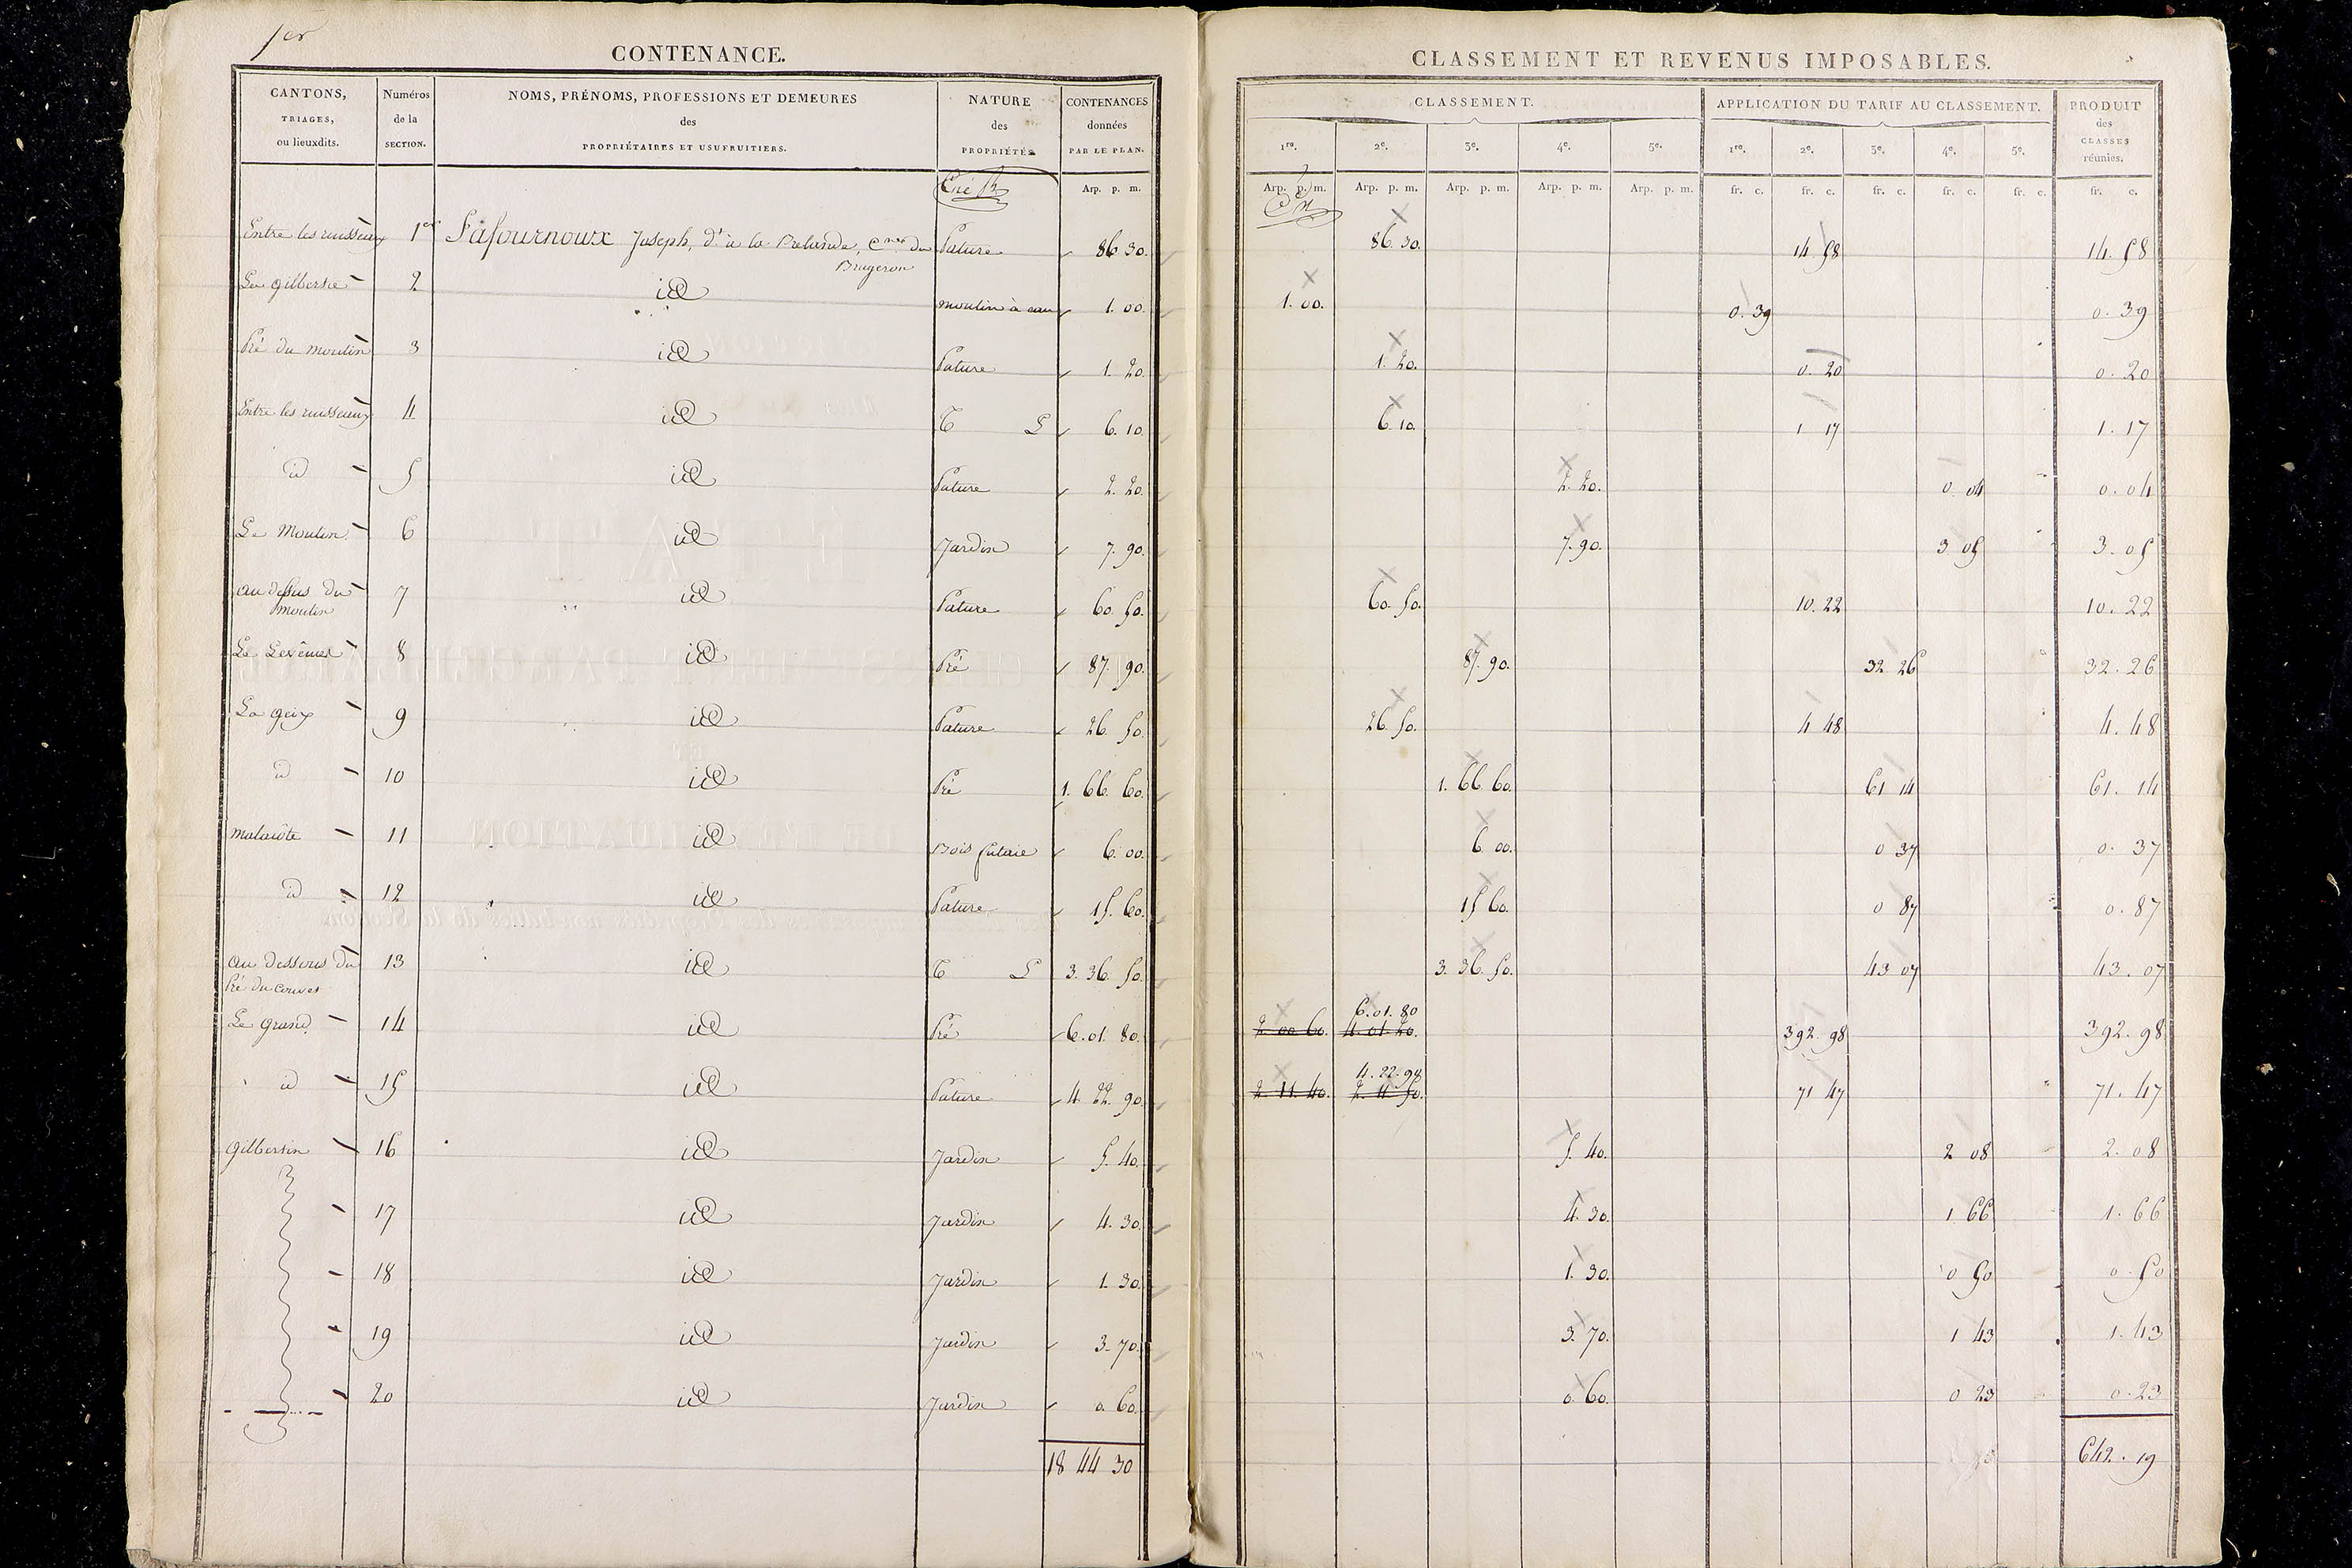 1er
CONTENANCE.
CANTONS, TRIAGES, ou lieuxdits. | Numéros de la SECTION. | NOMS, PRÉNOMS, PROFESSIONS ET DEMEURES des PROPRIÉTAIRES ET USUFRUITIERS. | NATURE des PROPRIÉTÉS | CONTENANCES données PAR LE PLAN.
Arp. p. m.
Entre les ruisseaux 1er Lafournoux Joseph, dt à la Prelande, Cne du Pature 86 30.
Brugeron
La gilbersie 2 id moulin à eau 1. 00.
Pré du moulin 3 id Pature 1. 20.
Entre les ruisseaux 4 id T L 6. 10
id 5 id Pature 2. 20.
Le Moulin 6 id Jardin 7. 90.
au dessus du 7 id Pature 60. 50.
moulin
8 id Pré 87. 90.
9 id Pature 26. 50.
id 10 id Pré 1. 66. 60.
malaiôte 11 id Bois futaie 6. 00.
id 12 id Pature 15. 60.
au dessous du 13 id T L 3. 36. 50.
Pré du
Le grand 14 id Pré 6. 01. 80.
id 15 id Pature 4. 22. 90.
gilbersin 16 id Jardin 5. 40.
17 id Jardin 4. 30.
18 id Jardin 1. 30.
19 id Jardin 3. 70.
20 id Jardin 0. 60.
18 44 30
CLASSEMENT ET REVENUS IMPOSABLES.
CLASSEMENT. | APPLICATION DU TARIF AU CLASSEMENT. | PRODUIT des CLASSES réunies.
1re. 2e. 3e. 4e. 5e. 1re. 2e. 3e. 4e. 5e.
Arp. p. m. Arp. p. m. Arp. p. m. Arp. p. m. Arp. p. m. fr. c. fr. c. fr. c. fr. c. fr. c. fr. c.
86. 30. 14 58 14. 58
1. 00. 0. 39 0. 39
1. 20. 0. 20 0. 20
6. 10. 1 17 1. 17
2. 20. 0. 04 0. 04
7. 90. 3 05 3. 05
60. 50. 10. 22 10. 22
87. 90. 32 26 32. 26
26. 50. 4 48 4. 48
1. 66. 60. 61 14 61. 14
6. 00. 0 37 0. 37
15 60. 0 87 0. 87
3. 36. 50. 43 07 43. 07
6. 01. 80
2. 00 60. 4. 01. 20. 392. 98 392. 98
4. 22. 90
2. 11. 40. 2. 11 50. 71 47 71. 47
5. 40. 2 08 2. 08
4. 30. 1 66 1. 66
1. 30. 0 50 0. 50
3. 70. 1 43 1. 43
0. 60. 0 23 0. 23
642. 19